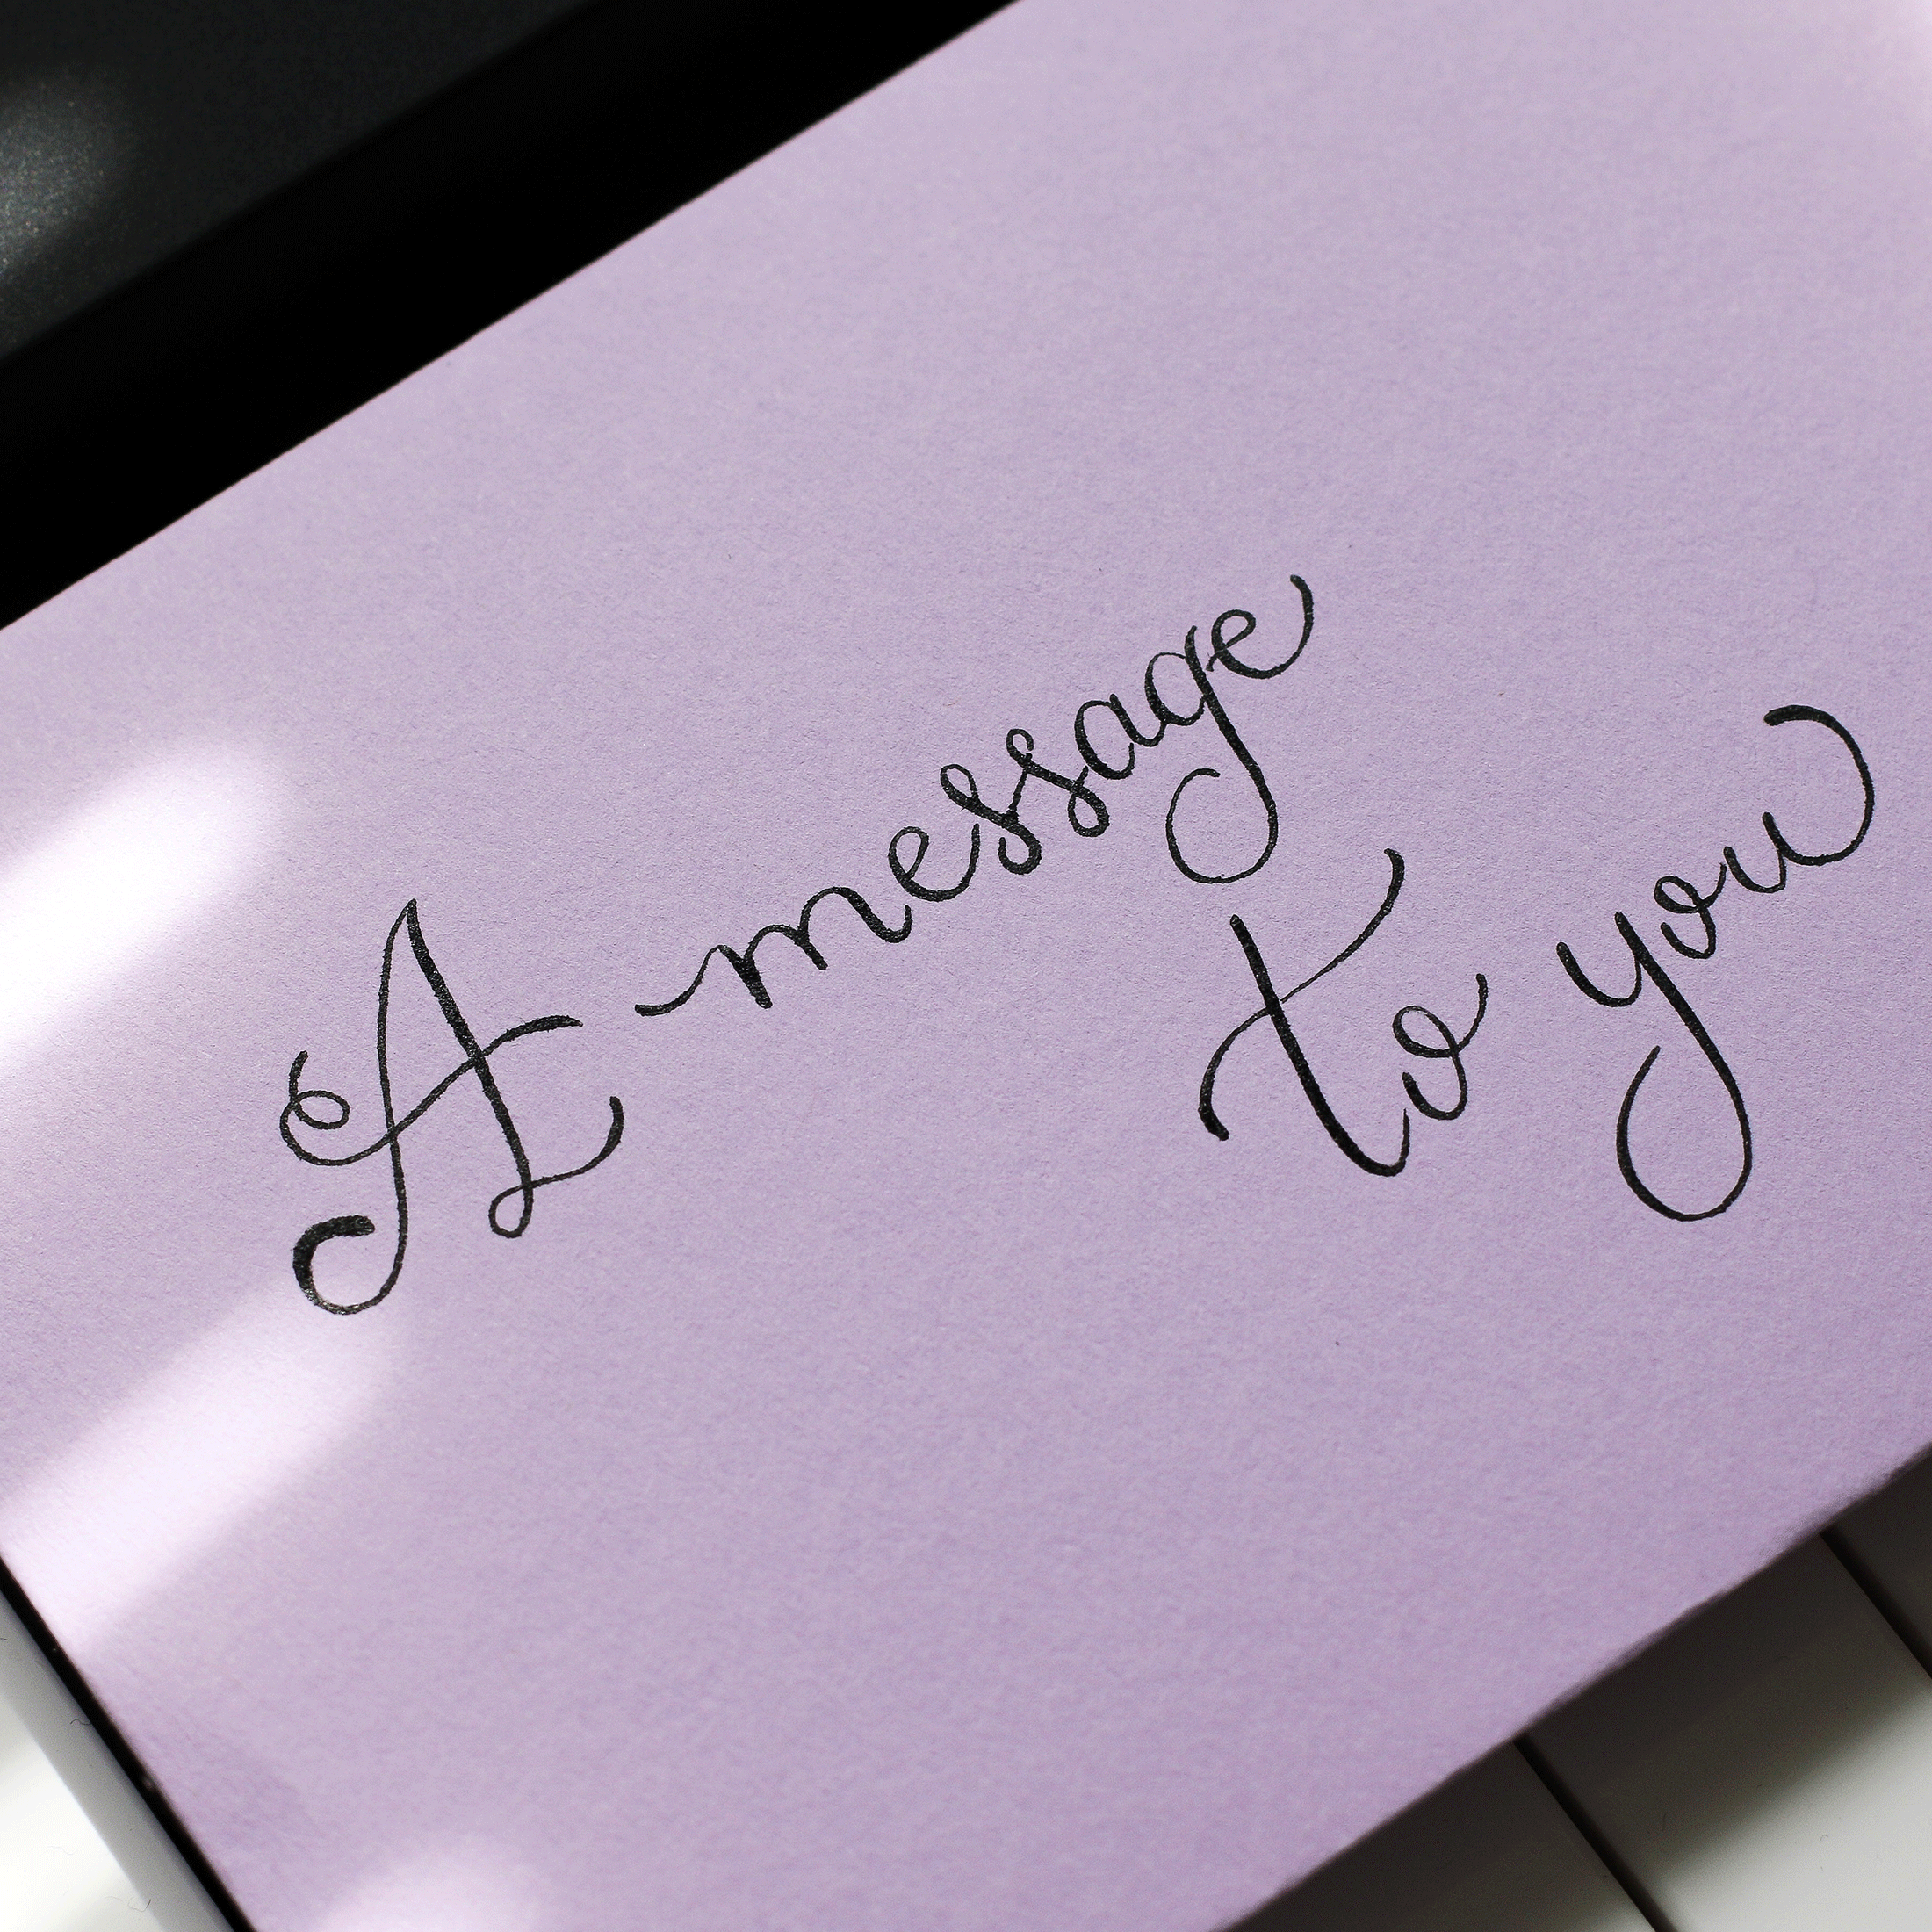 A message
to you